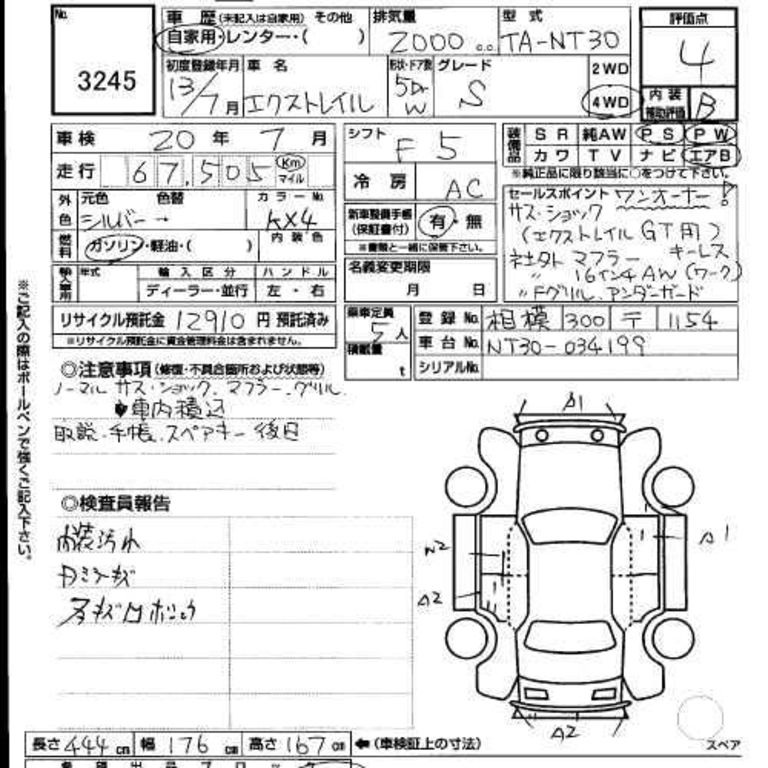 No.
3245
車歴 (未記入は自家用) その他
自家用・レンター・( )
排気量
2000 c.c.
型式
TA-NT30
評価点
4
初度登録年月
13/7月
車名
エクストレイル
形状・ドア数
5Dr
W
グレード
S
2WD
4WD
内装
補助評価
B
車検 20年 7月
シフト
F5
装備品
SR 純AW PS PW
カワ TV ナビ エアB
※純正品に限り該当に○をつけて下さい。
走行 67,505 Km
マイル
冷房
AC
外色
元色 色替
シルバー →
カラーNo.
KX4
新車整備手帳
(保証書付)
有・無
※書類と一緒に保管下さい。
セールスポイント ワンオーナー!
サス・ショック
(エクストレイル GT用)
社外 マフラー キーレス
〃 16インチAW (ワーク)
〃 Fグリル、アンダーガード
燃料
ガソリン・軽油・( )
内装色
輸入車用
年式
輸入区分
ハンドル
ディーラー・並行
左・右
名義変更期限
月 日
リサイクル預託金 12910 円 預託済み
※リサイクル預託金に資金管理料金は含まれません。
乗車定員
5人
積載量
t
登録No. 相模 300 〒 1154
車台No. NT30-034199
シリアルNo.
◎注意事項 (修復・不具合箇所および状態等)
ノーマル サス・ショック、マフラー、グリル
車内積込
取説・手帳、スペアキー 後日
◎検査員報告
内装汚れ
A1
A1
A2
A2
※ご記入の際はボールペンで強くご記入下さい。
長さ 444 cm 幅 176 cm 高さ 167 cm ←(車検証上の寸法)
スペア